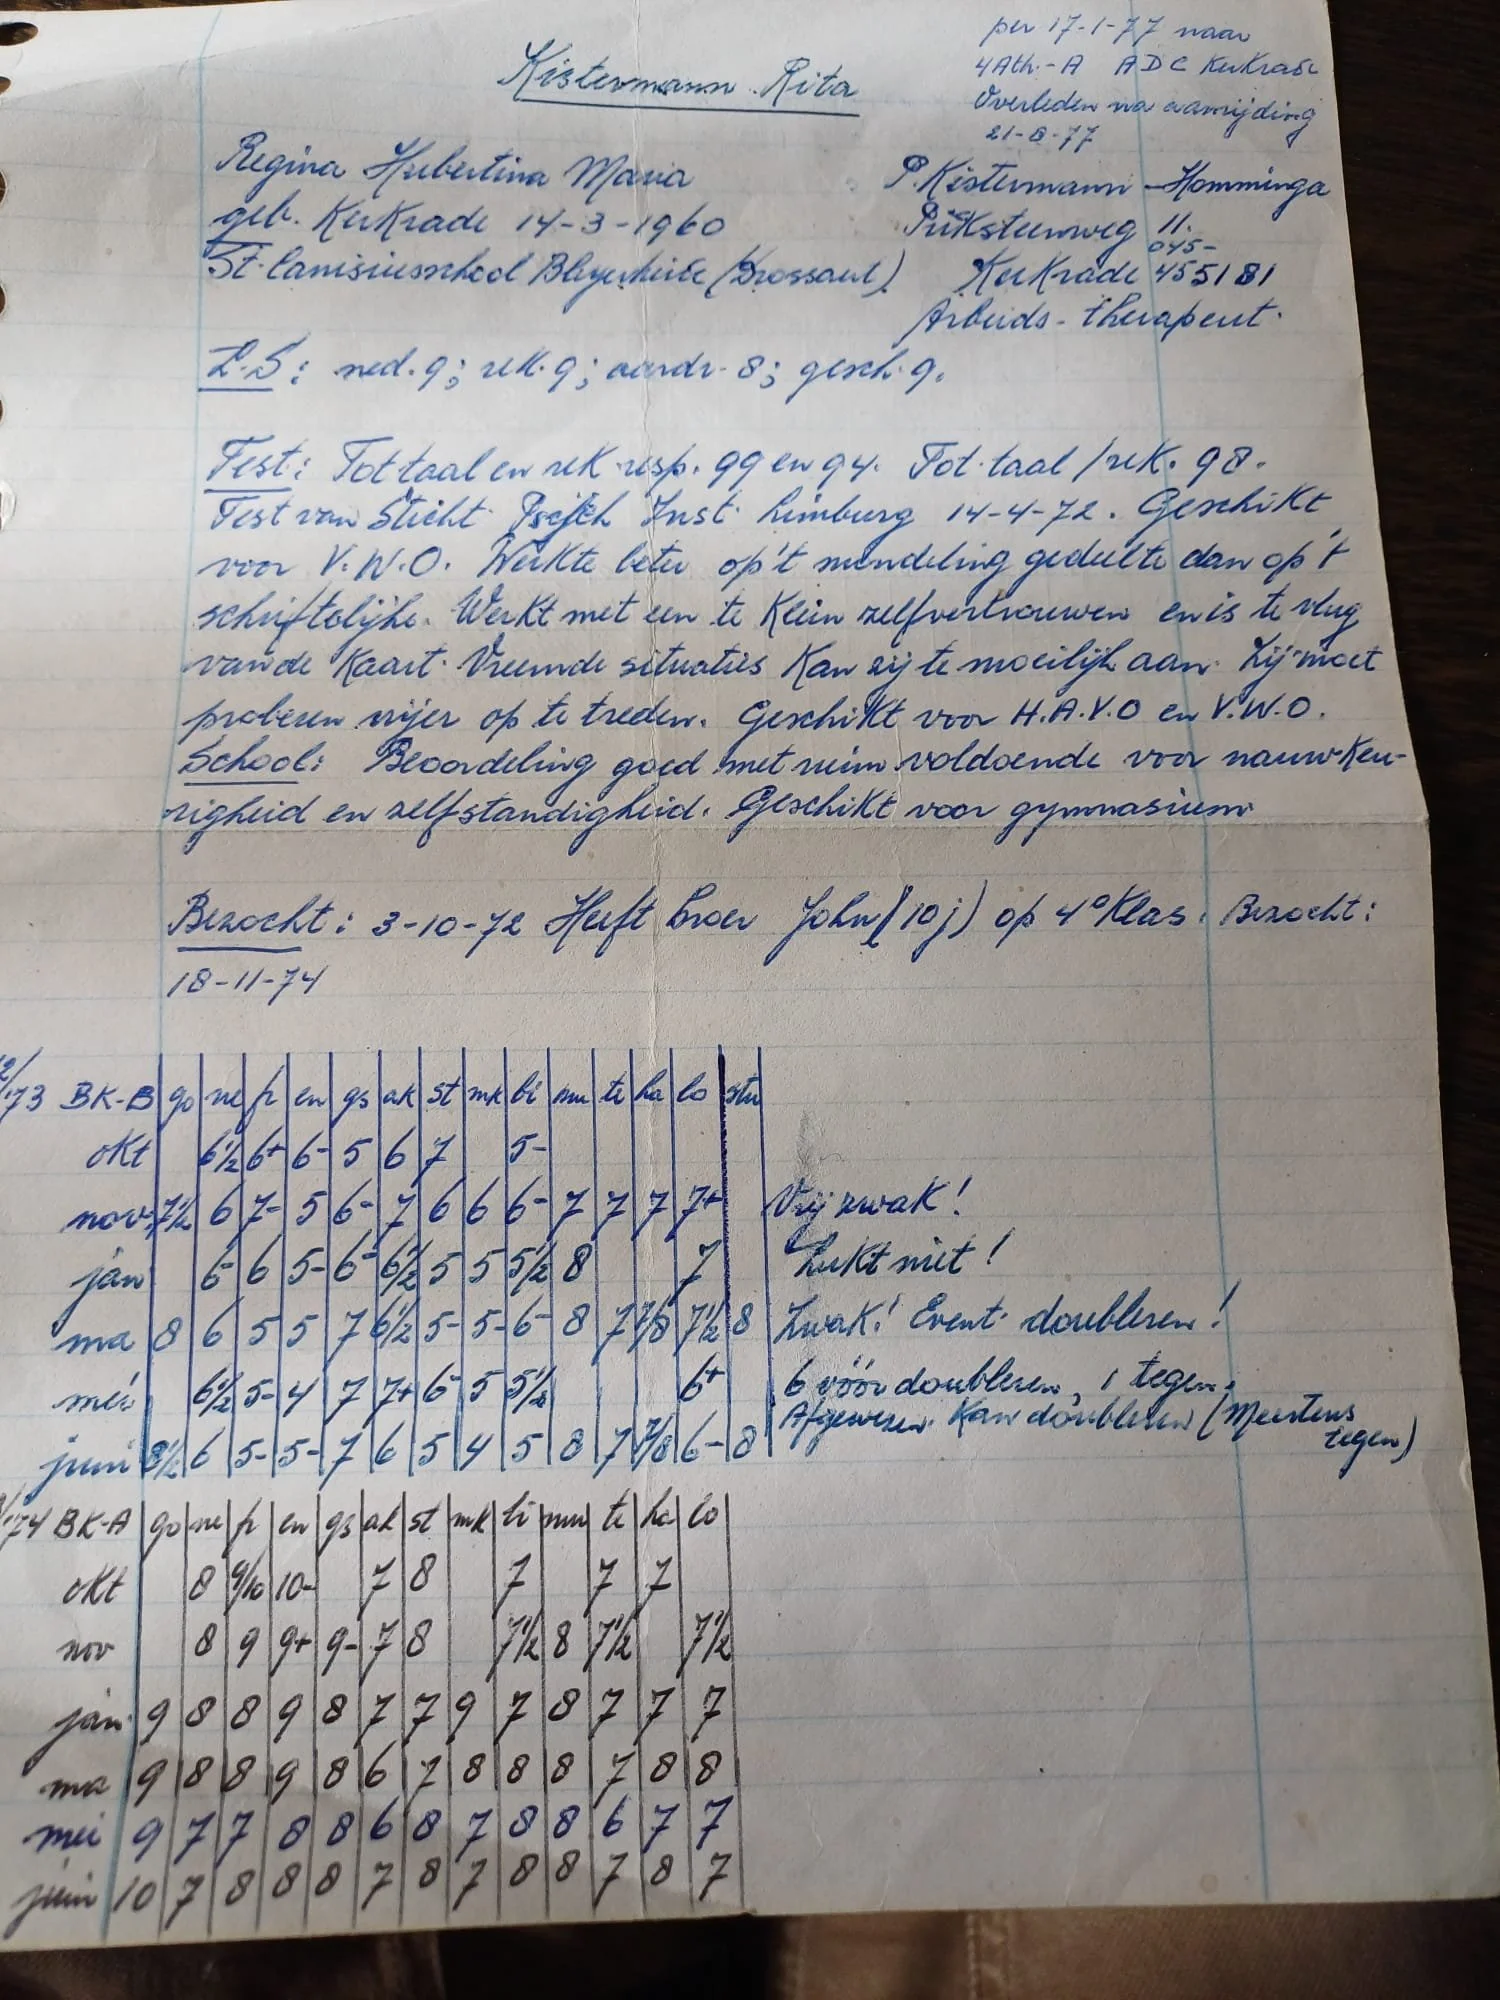 per 17-1-77 naar
4Ath.-A ADC Kerkrade
Overleden na aanrijding
21-8-77
Kistermann Rita
Regina Hubertina Maria
geb. Kerkrade 14-3-1960
St. Canisiusschool Bleyerheide (Drossaert)
P. Kistermann - Homminga
Pricksteenweg 11.
045-
Kerkrade 455181
Arbeids-therapeut.
L.S: ned. 9; rek. 9; aardr. 8; gesch. 9.
Test: Tot taal en rek resp. 99 en 94. Tot. taal/rek. 98.
Test van Sticht. Psych Inst. Limburg 14-4-72. Geschikt
voor V.W.O. Werkte beter op't mondeling gedeelte dan op 't
schriftelijke. Werkt met een te klein zelfvertrouwen en is te vlug
van de kaart. Vreemde situaties kan zij te moeilijk aan. Zij moet
proberen vrijer op te treden. Geschikt voor H.A.V.O en V.W.O.
School: Beoordeling goed met ruim voldoende voor nauwkeu-
righeid en zelfstandigheid. Geschikt voor gymnasium
Bezocht: 3-10-72 Heeft broer John (10j) op 4e klas. Bezocht:
18-11-74
/73 BK-B go ne fr en gs ak st mk bi mu te ha lo stu
okt 6½ 6+ 6- 5 6 7 5-
nov. 7½ 6 7- 5 6- 7 6 6 6- 7 7 7 7+ Vrij zwak!
jan 6- 6 5- 6- 6½ 5 5 5½ 8 7 Lukt niet!
ma 8 6 5 5 7 6½ 5- 5- 6- 8 7 7/8 7½ 8 Zwak! Event. doubleren!
mei 6½ 5- 4 7 7+ 6- 5 5½ 6+ 6 vóór doubleren, 1 tegen.
Afgewezen. Kan doubleren (Meertens
tegen)
juni 8½ 6 5- 5- 7 6 5 4 5 8 7 7/8 6- 8
/74 BK-A go ne fr en gs ak st mk bi mu te ha lo
okt 8 9/10 10- 7 8 7 7 7
nov 8 9 9+ 9- 7 8 7½ 8 7½ 7½
jan. 9 8 8 9 8 7 7 9 7 8 7 7 7
ma 9 8 8 9 8 6 7 8 8 8 7 8 8
mei 9 7 7 8 8 6 8 7 8 8 6 7 7
juni 10 7 8 8 8 7 8 7 8 8 7 8 7